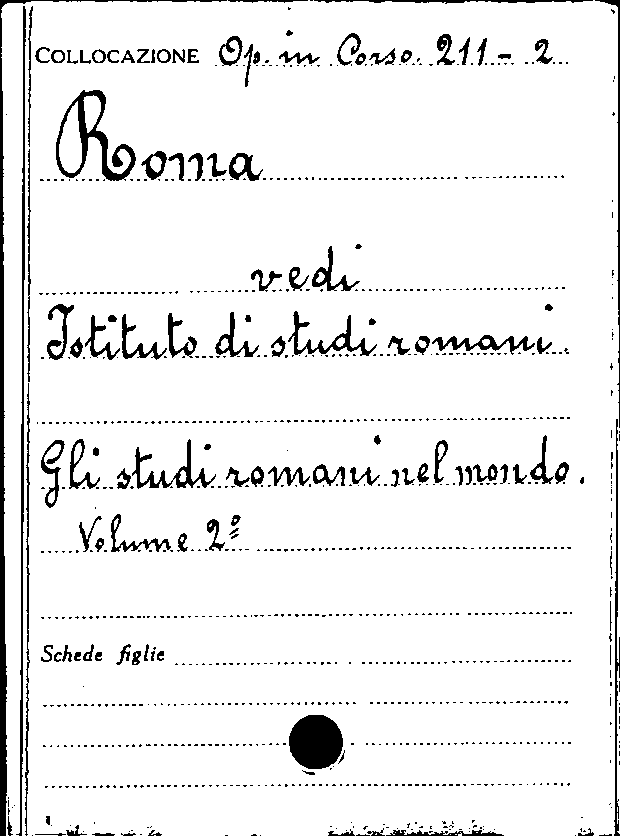 COLLOCAZIONE Op. in Corso. 211 - 2
Roma
vedi
Istituto di studi romani.
Gli studi romani nel mondo.
Volume 2º
Schede figlie